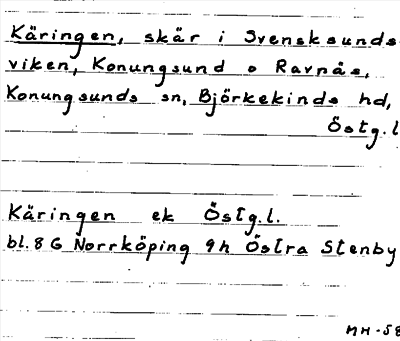 Käringen, skär i Svensksunds-
viken, Konungsund o Ravnäs,
Konungsunds sn, Björkekinds hd,
Östg.l
Käringen ek Östg.l.
bl. 8 G Norrköping 9h Östra Stenby
MH-58